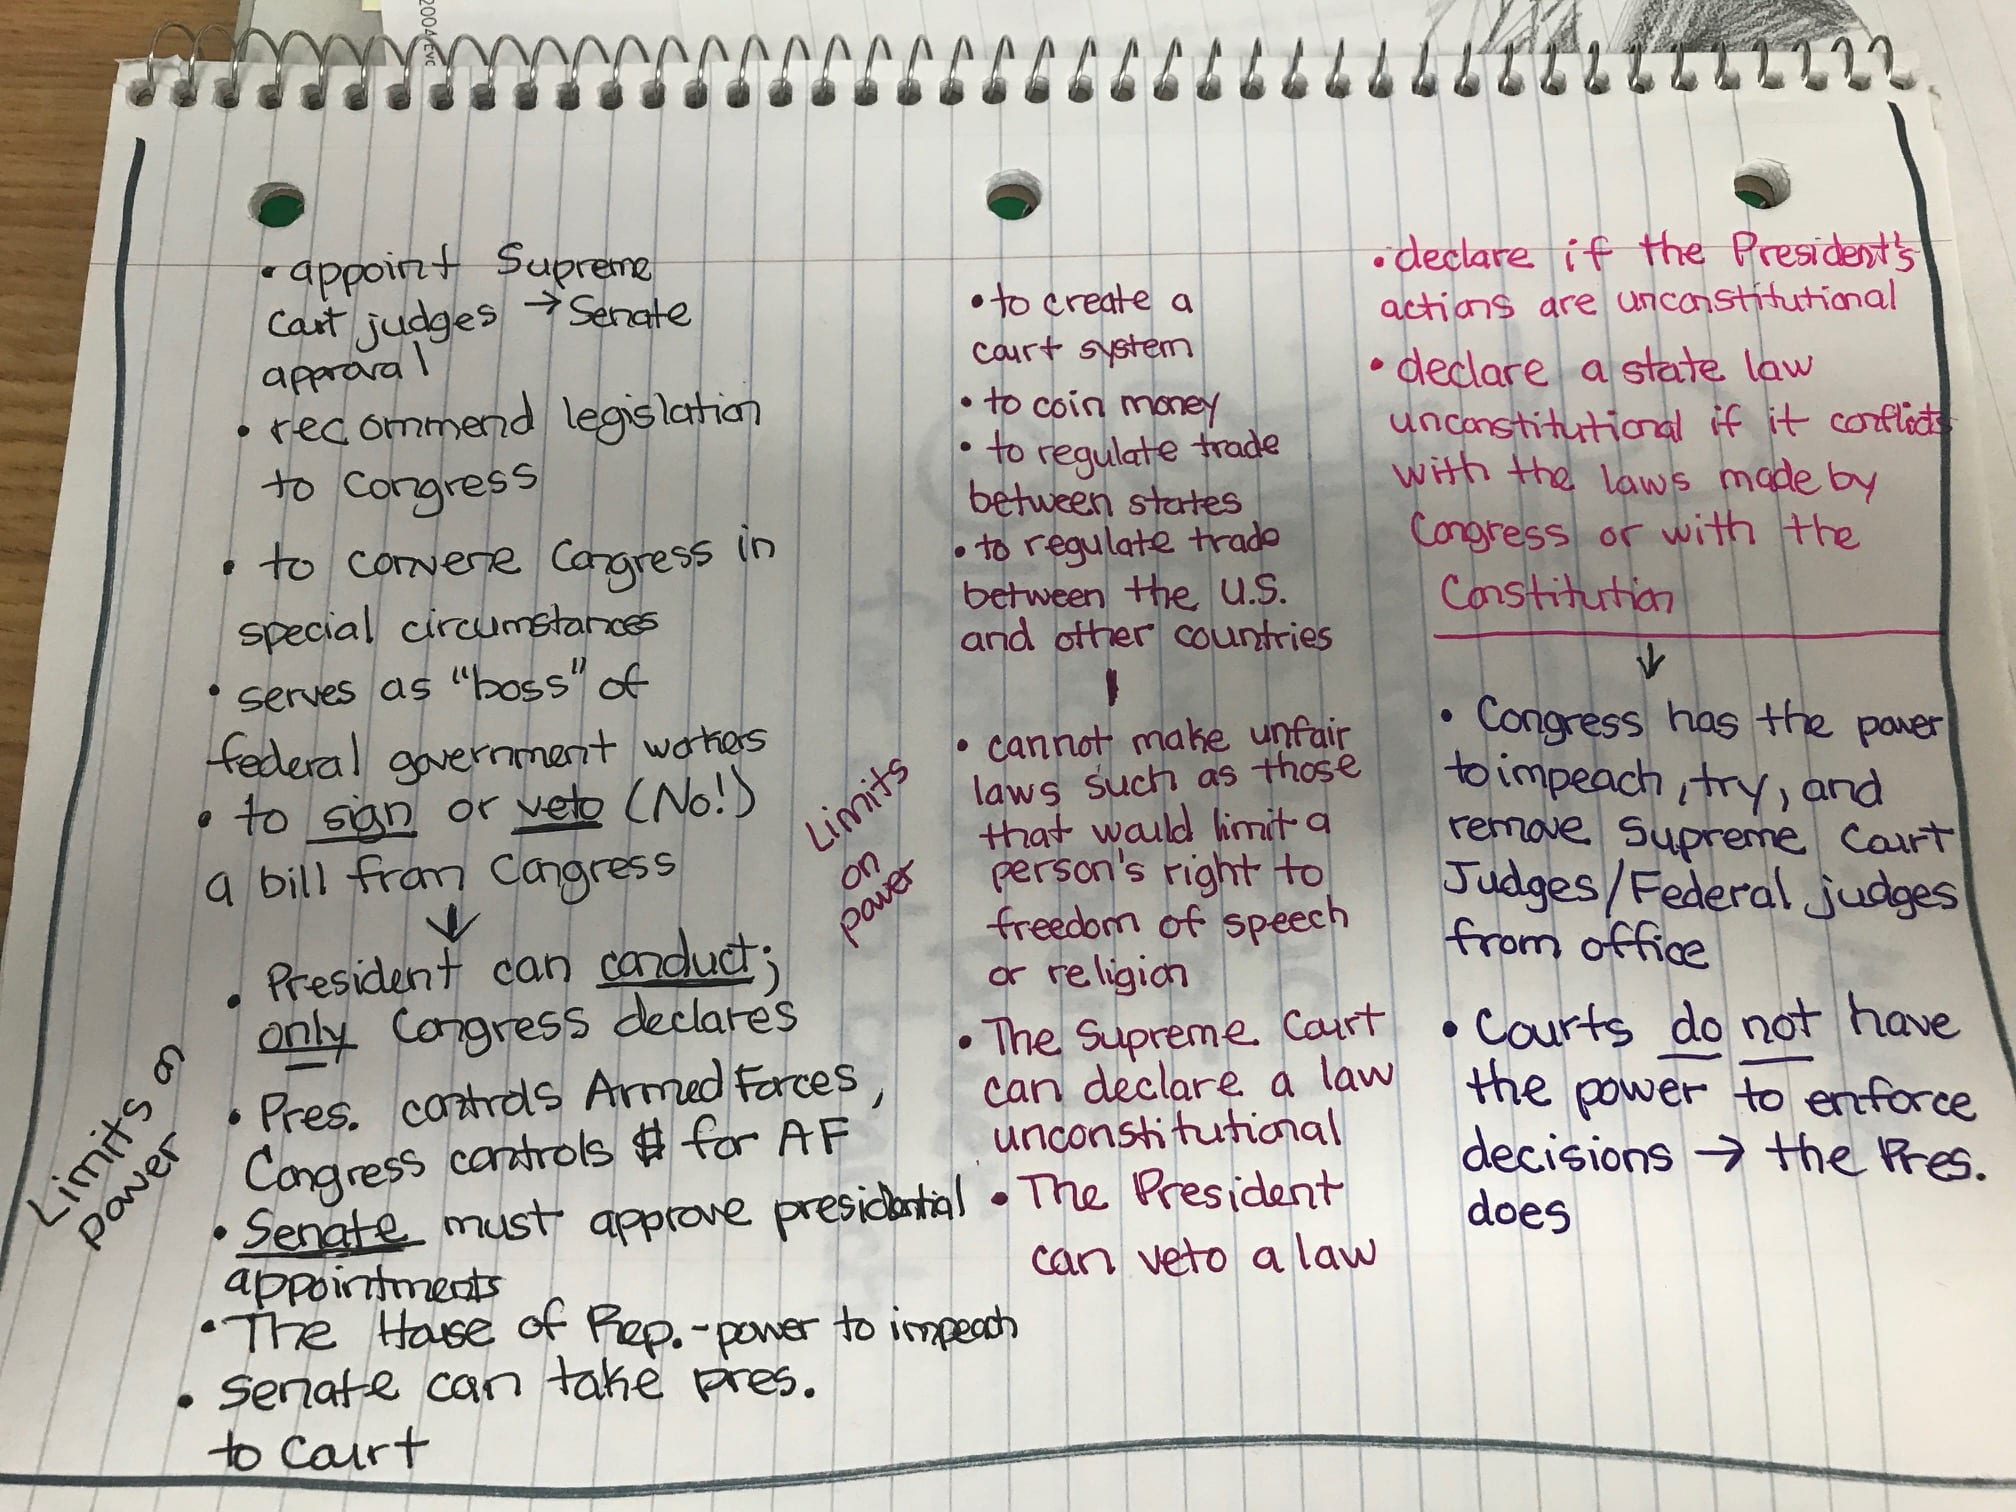 2004 Eve
• appoint Supreme
Court judges → Senate
approval
• recommend legislation
to Congress
• to convene Congress in
special circumstances
• serves as "boss" of
federal government workers
• to sign or veto (No!)
a bill from Congress
↓
• President can conduct;
only Congress declares
• Pres. controls Armed Forces,
Congress controls $ for AF
• Senate must approve presidential
appointments
• The House of Rep. - power to impeach
• Senate can take pres.
to Court
Limits on
power
• to create a
court system
• to coin money
• to regulate trade
between states
• to regulate trade
between the U.S.
and other countries
• cannot make unfair
laws such as those
that would limit a
person's right to
freedom of speech
or religion
• The Supreme Court
can declare a law
unconstitutional
• The President
can veto a law
Limits
on
power
• declare if the President's
actions are unconstitutional
• declare a state law
unconstitutional if it conflicts
with the laws made by
Congress or with the
Constitution
↓
• Congress has the power
to impeach, try, and
remove Supreme Court
Judges/Federal judges
from office
• Courts do not have
the power to enforce
decisions → the Pres.
does